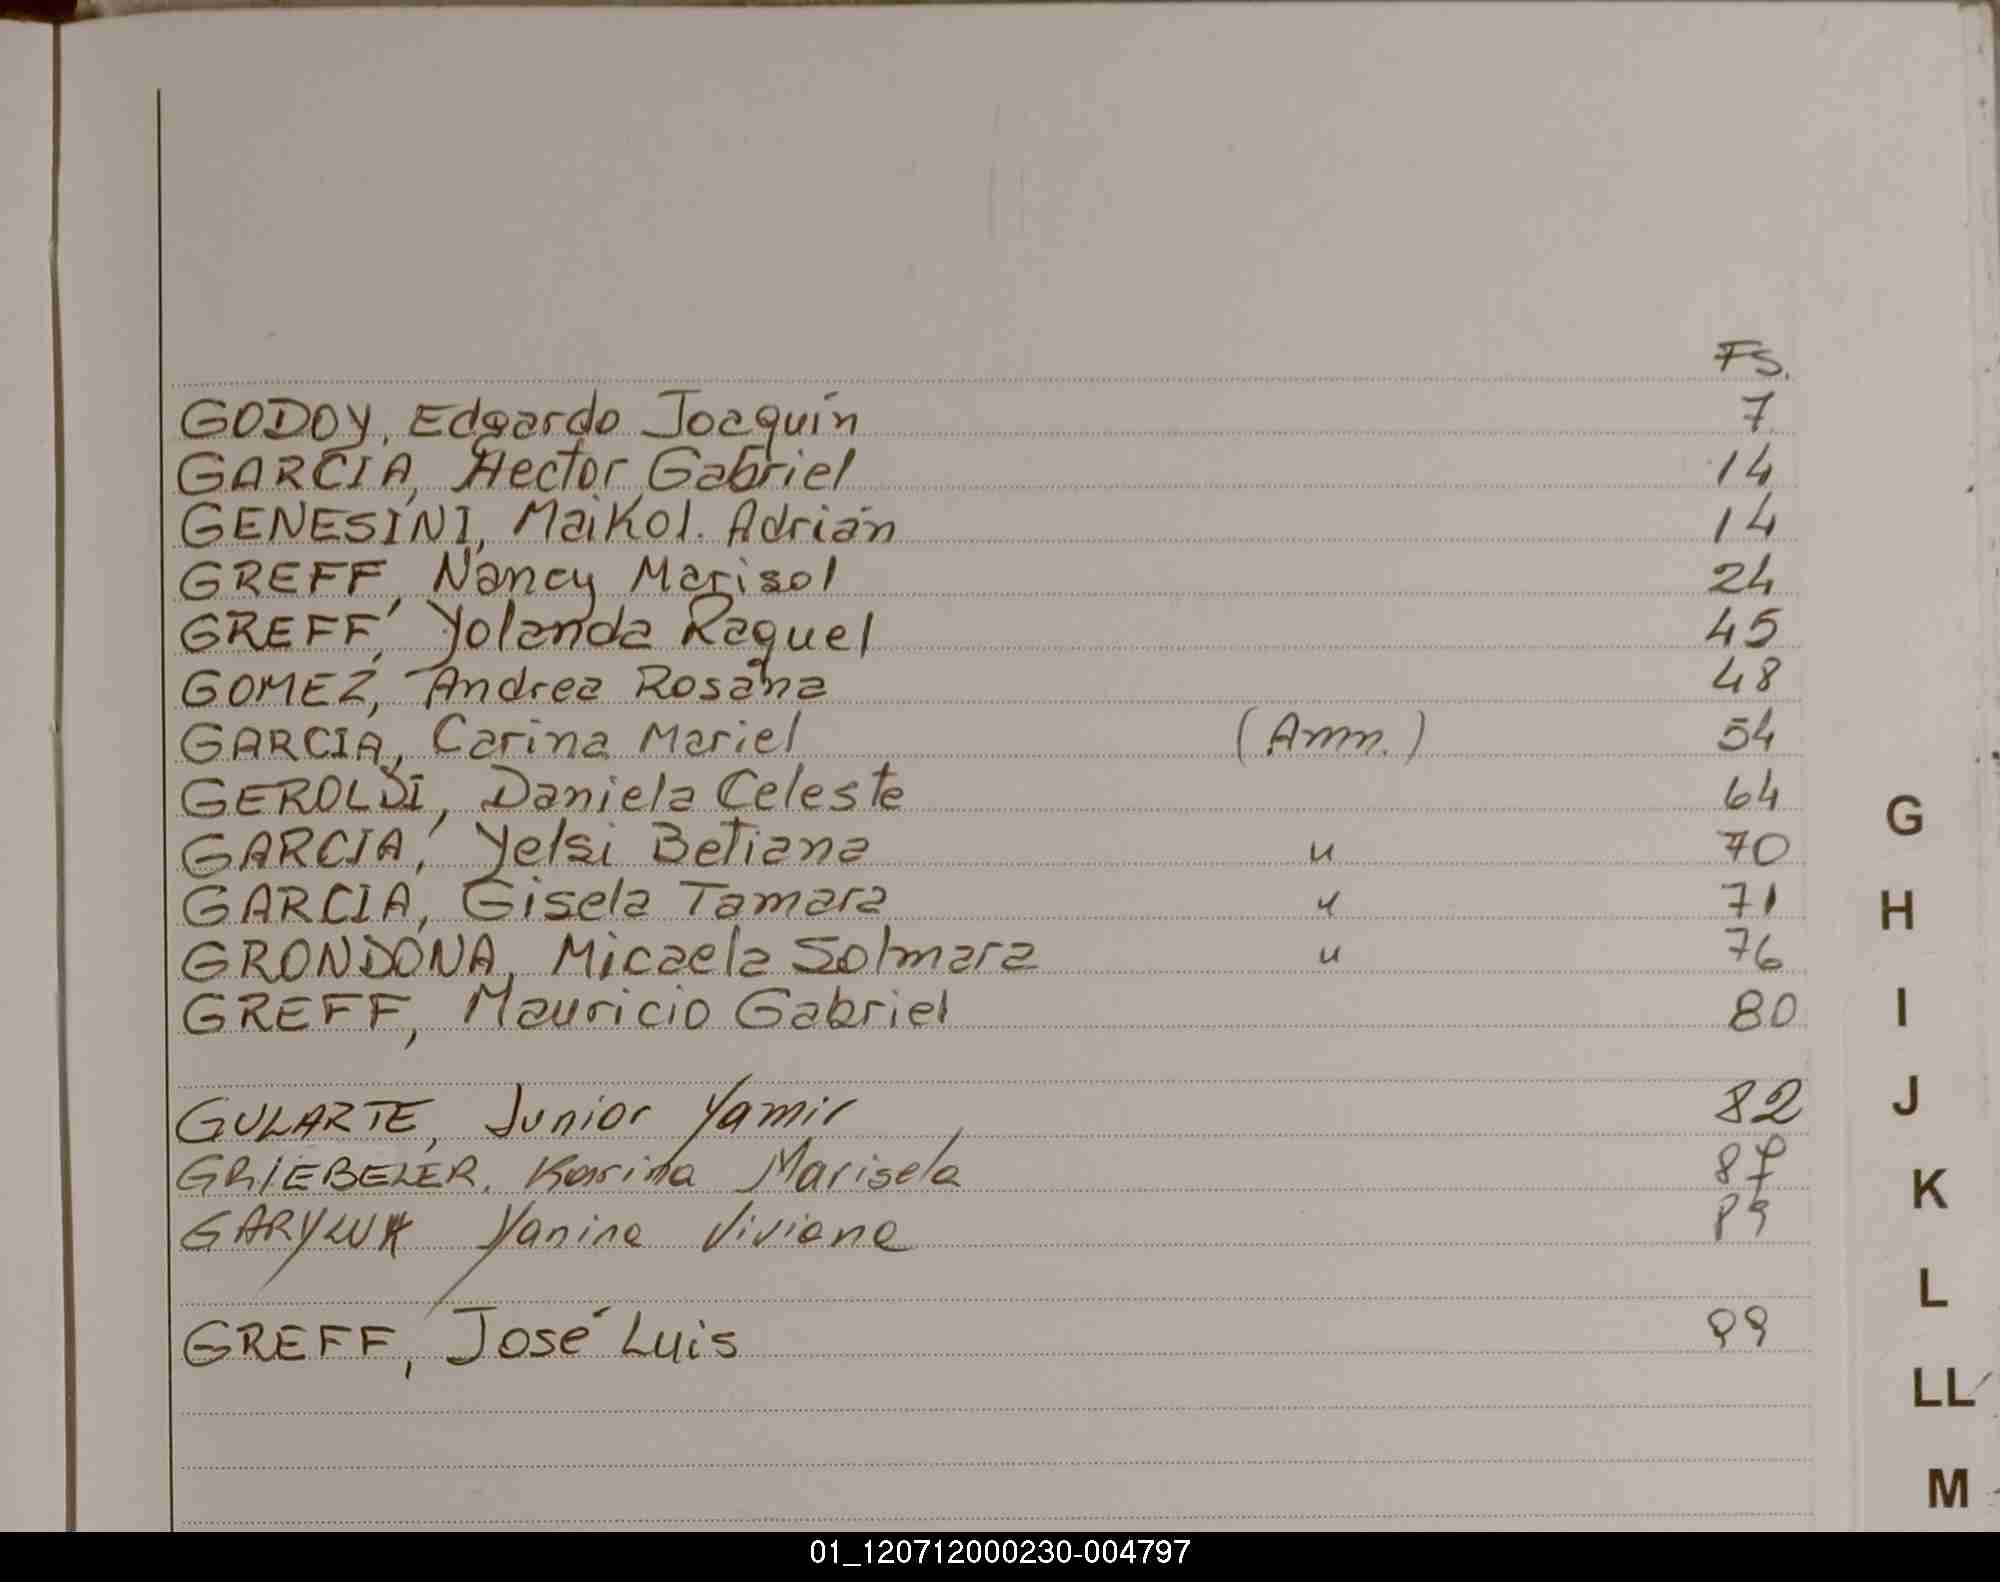 FS.
GODOY, Edgardo Joaquín 7
GARCIA, Hector Gabriel 14
GENESINI, Maikol Adrián 14
GREFF, Nancy Marisol 24
GREFF, Yolanda Raquel 45
GOMEZ, Andrea Rosana 48
GARCIA, Carina Mariel (Amn.) 54
GEROLDI, Daniela Celeste 64
GARCIA, Yelsi Betiana " 70
GARCIA, Gisela Tamara " 71
GRONDONA, Micaela Solmara " 76
GREFF, Mauricio Gabriel 80
GULARTE, Junior Yamir 82
GRIEBELER, Karina Marisela 87
GARYLUK Yanina Viviana 89
GREFF, José Luis 99
G
H
I
J
K
L
LL
M
01_120712000230-004797